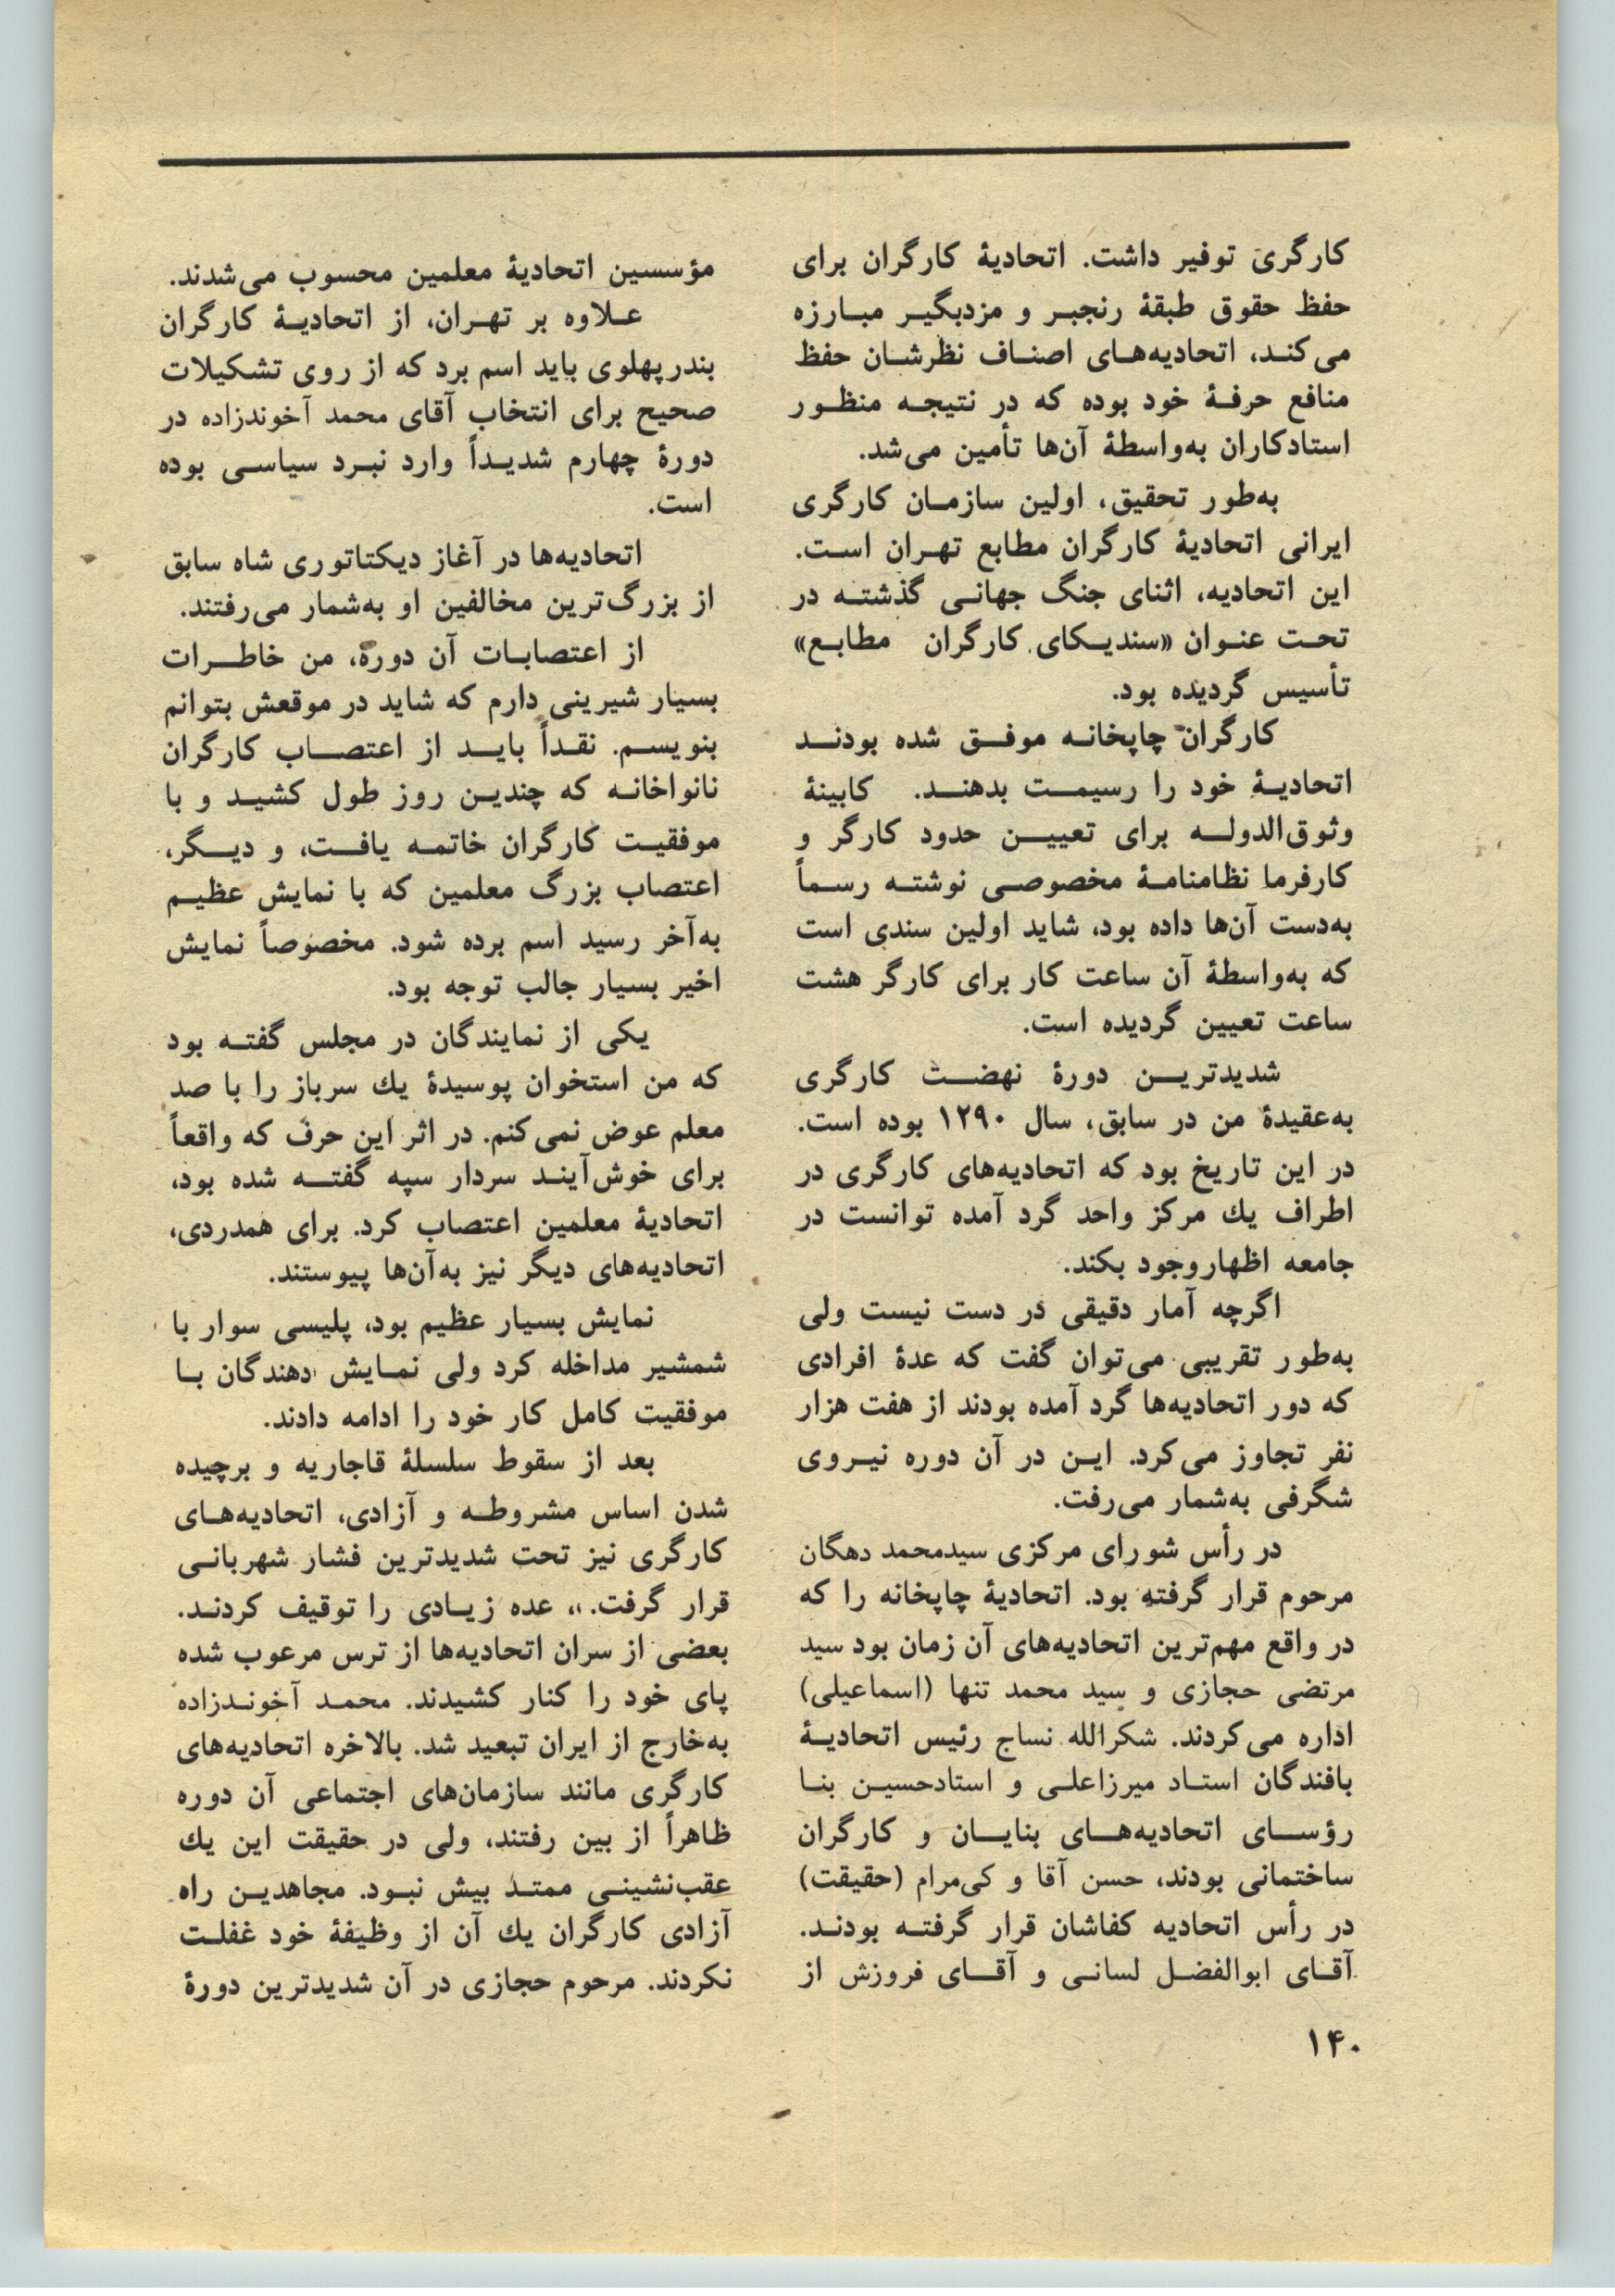 کارگری توفیر داشت. اتحادیهٔ کارگران برای
حفظ حقوق طبقهٔ رنجبر و مزدبگیر مبارزه
می‌کند، اتحادیه‌های اصناف نظرشان حفظ
منافع حرفهٔ خود بوده که در نتیجه منظور
استادکاران به‌واسطهٔ آن‌ها تأمین می‌شد.
به‌طور تحقیق، اولین سازمان کارگری
ایرانی اتحادیهٔ کارگران مطابع تهران است.
این اتحادیه، اثنای جنگ جهانی گذشته در
تحت عنوان «سندیکای کارگران مطابع»
تأسیس گردیده بود.
کارگران چاپخانه موفق شده بودند
اتحادیهٔ خود را رسیمت بدهند. کابینهٔ
وثوق‌الدوله برای تعیین حدود کارگر و
کارفرما نظامنامهٔ مخصوصی نوشته رسماً
به‌دست آن‌ها داده بود، شاید اولین سندی است
که به‌واسطهٔ آن ساعت کار برای کارگر هشت
ساعت تعیین گردیده است.
شدیدترین دورهٔ نهضت کارگری
به‌عقیدهٔ من در سابق، سال ۱۲۹۰ بوده است.
در این تاریخ بود که اتحادیه‌های کارگری در
اطراف یك مرکز واحد گرد آمده توانست در
جامعه اظهاروجود بکند.
اگرچه آمار دقیقی در دست نیست ولی
به‌طور تقریبی می‌توان گفت که عدهٔ افرادی
که دور اتحادیه‌ها گرد آمده بودند از هفت هزار
نفر تجاوز می‌کرد. این در آن دوره نیروی
شگرفی به‌شمار می‌رفت.
در رأس شورای مرکزی سیدمحمد دهگان
مرحوم قرار گرفته بود. اتحادیهٔ چاپخانه را که
در واقع مهم‌ترین اتحادیه‌های آن زمان بود سید
مرتضی حجازی و سید محمد تنها (اسماعیلی)
اداره می‌کردند. شکرالله نساج رئیس اتحادیهٔ
بافندگان استاد میرزاعلی و استادحسین بنا
رؤسای اتحادیه‌های بنایان و کارگران
ساختمانی بودند، حسن آقا و کی‌مرام (حقیقت)
در رأس اتحادیه کفاشان قرار گرفته بودند.
آقای ابوالفضل لسانی و آقای فروزش از
مؤسسین اتحادیهٔ معلمین محسوب می‌شدند.
علاوه بر تهران، از اتحادیهٔ کارگران
بندرپهلوی باید اسم برد که از روی تشکیلات
صحیح برای انتخاب آقای محمد آخوندزاده در
دورهٔ چهارم شدیداً وارد نبرد سیاسی بوده
است.
اتحادیه‌ها در آغاز دیکتاتوری شاه سابق
از بزرگ‌ترین مخالفین او به‌شمار می‌رفتند.
از اعتصابات آن دوره، من خاطرات
بسیار شیرینی دارم که شاید در موقعش بتوانم
بنویسم. نقداً باید از اعتصاب کارگران
نانواخانه که چندین روز طول کشید و با
موفقیت کارگران خاتمه یافت، و دیگر،
اعتصاب بزرگ معلمین که با نمایش عظیم
به‌آخر رسید اسم برده شود. مخصوصاً نمایش
اخیر بسیار جالب توجه بود.
یکی از نمایندگان در مجلس گفته بود
که من استخوان پوسیدهٔ یك سرباز را با صد
معلم عوض نمی‌کنم. در اثر این حرف که واقعاً
برای خوش‌آیند سردار سپه گفته شده بود،
اتحادیهٔ معلمین اعتصاب کرد. برای همدردی،
اتحادیه‌های دیگر نیز به‌آن‌ها پیوستند.
نمایش بسیار عظیم بود، پلیسی سوار با
شمشیر مداخله کرد ولی نمایش دهندگان با
موفقیت کامل کار خود را ادامه دادند.
بعد از سقوط سلسلهٔ قاجاریه و برچیده
شدن اساس مشروطه و آزادی، اتحادیه‌های
کارگری نیز تحت شدیدترین فشار شهربانی
قرار گرفت.،، عده زیادی را توقیف کردند.
بعضی از سران اتحادیه‌ها از ترس مرعوب شده
پای خود را کنار کشیدند. محمد آخوندزاده
به‌خارج از ایران تبعید شد. بالاخره اتحادیه‌های
کارگری مانند سازمان‌های اجتماعی آن دوره
ظاهراً از بین رفتند، ولی در حقیقت این یك
عقب‌نشینی ممتد بیش نبود. مجاهدین راه
آزادی کارگران یك آن از وظیفهٔ خود غفلت
نکردند. مرحوم حجازی در آن شدیدترین دورهٔ
۱۴۰